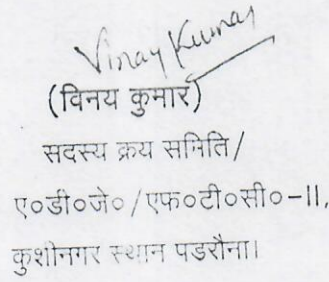 Vinay Kumar
(विनय कुमार)
सदस्य क्रय समिति/
ए०डी०जे०/एफ०टी०सी०-II,
कुशीनगर स्थान पडरौना।